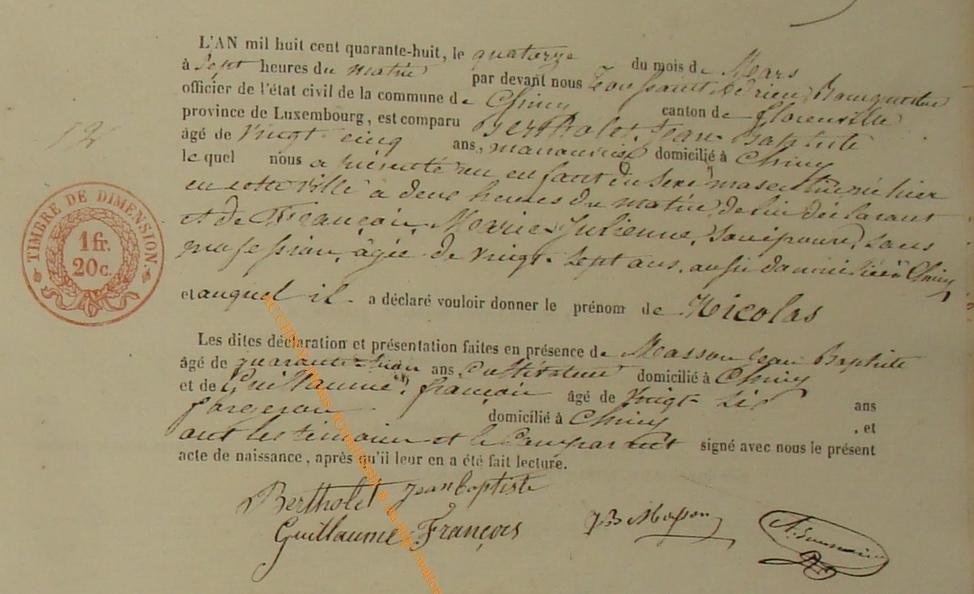 L'AN mil huit cent quarante-huit, le quatorze du mois de Mars
à sept heures du matin par devant nous Toussaint Adrien
officier de l'état civil de la commune de Chiny canton de florenville
province de Luxembourg, est comparu Bertholet, Jean Baptiste
âgé de vingt cinq ans, manœuvrier domicilié à Chiny
le quel nous a présenté un enfant du sexe masculin né hier
en cette ville à deux heures du matin, de lui déclarant
et de François, Marie Julienne, son épouse, sans
profession, âgée de vingt sept ans, aussi domiciliée à Chiny
et auquel il a déclaré vouloir donner le prénom de Nicolas
Les dites déclaration et présentation faites en présence de Masson Jean Baptiste
âgé de quarante ans, instituteur domicilié à Chiny
et de Guillaume, françois âgé de vingt six ans
forgeron domicilié à Chiny, et
ont les témoins et le Comparant signé avec nous le présent
acte de naissance, après qu'il leur en a été fait lecture.
Bertholet Jean Baptiste
Guillaume François
JB Masson
TIMBRE DE DIMENSION
1 fr.
20 c.